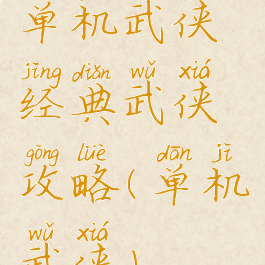 单机武侠
jīng diǎn wǔ xiá
经典武侠
gōng lüè dān jī
攻略(单机
wǔ xiá
武侠)